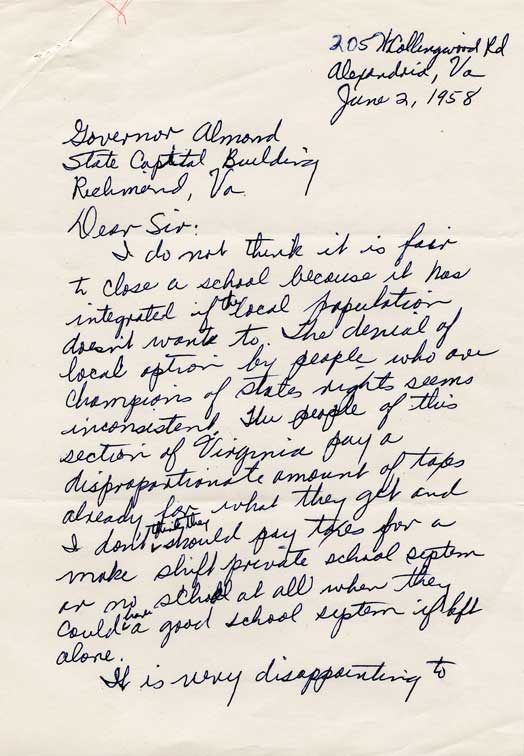 205 W Collingwood Rd
Alexandria, Va
June 2, 1958
Governor Almond
State Capital Building
Richmond, Va.
Dear Sir:
I do not think it is fair
to close a school because it has
integrated if the local population
doesn't want to. The denial of
local option by people who are
champions of states rights seems
inconsistent. The people of this
section of Virginia pay a
disproportionate amount of taxes
already for what they get and
I don't think they should pay taxes for a
make shift private school system
or no school at all when they
could have a good school system if left
alone.
It is very disappointing to